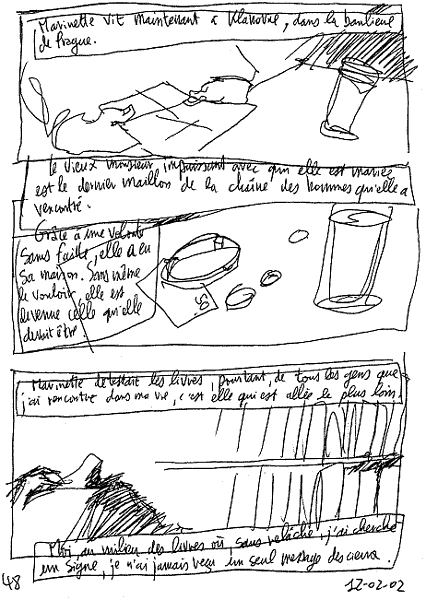 Marinette vit maintenant à Klanovic, dans la banlieue
de Prague.
le vieux monsieur impuissant avec qui elle est mariée
est le dernier maillon de la chaîne des hommes qu'elle a
rencontré.
Grâce à une volonté
sans faille, elle a eu
sa maison. Sans même
le vouloir, elle est
devenue celle qu'elle
devait être
50
Marinette détestait les livres, pourtant, de tous les gens que
j'ai rencontré dans ma vie, c'est elle qui est allée le plus loin.
Moi, au milieu des livres où, sans relâche, j'ai cherché
un signe, je n'ai jamais reçu un seul message des cieux.
48
12-02-02